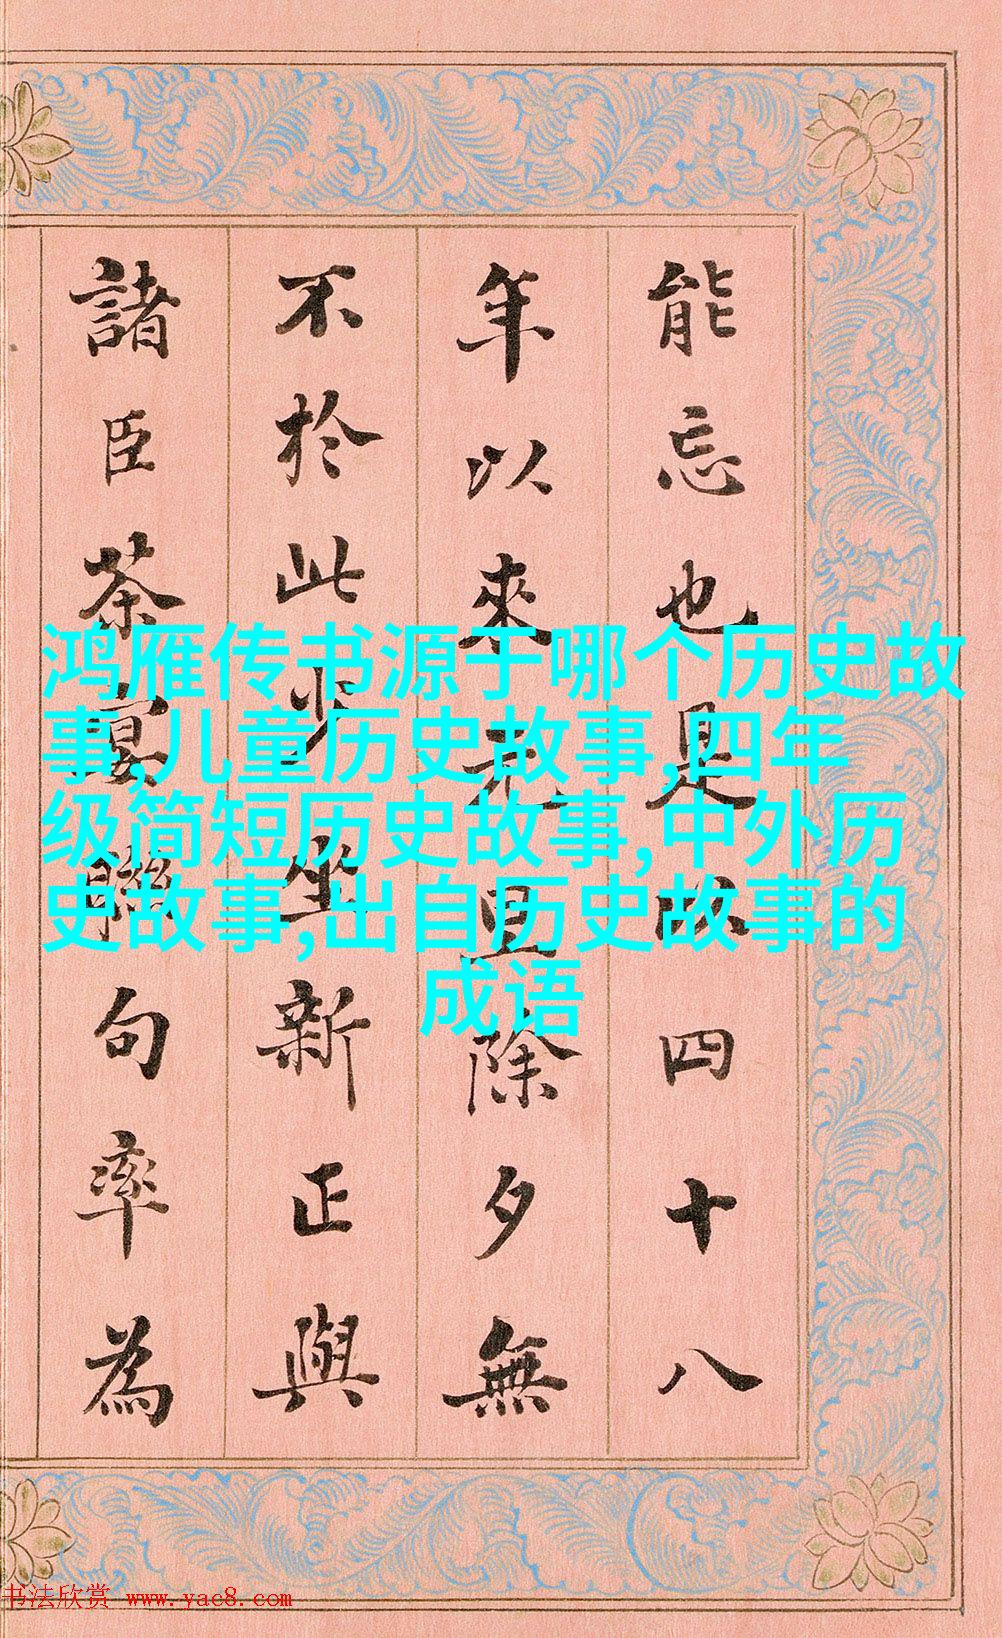 能忘也是以四十八
年以來元旦除夕無
不於此少坐新正與
諸臣茶宴聯句率為
鸿雁传书源于哪个历史故
事,儿童历史故事,四年
级简短历史故事,中外历
史故事,出自历史故事的
成语
书法欣赏 www.yac8.com